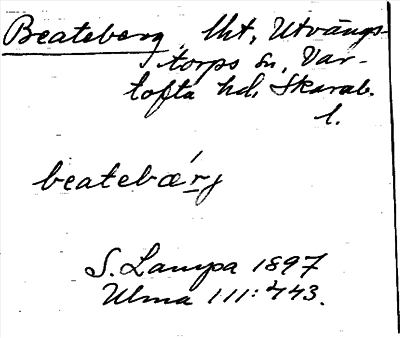 Beateberg, lht, Utvängs-
torps sn, Var-
tofta hd, Skarab.
l.
beatebær̲j
S. Lampa 1897
Ulma 111:443.